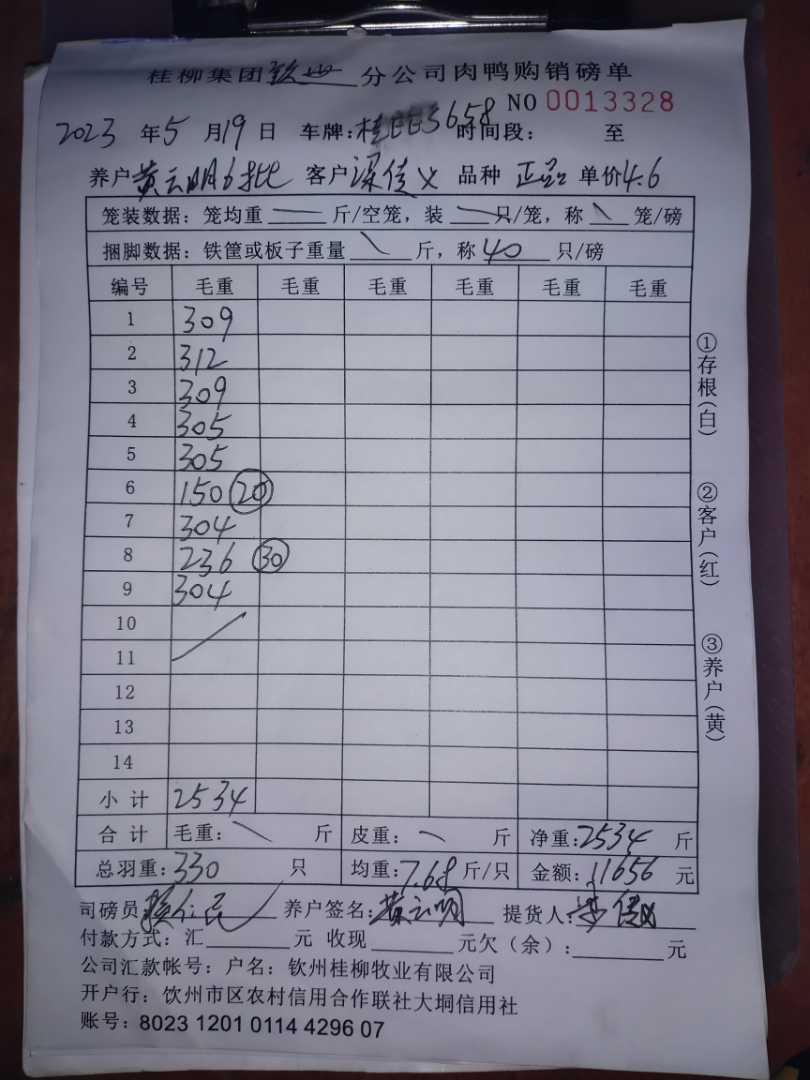 桂柳集团钦州分公司肉鸭购销磅单
NO 0013328
2023年5月19日 车牌:桂 3658 时间段: 至
养户黄云明6批 客户梁佳义 品种 正品 单价4.6
笼装数据:笼均重 斤/空笼,装 只/笼,称 笼/磅
捆脚数据:铁筐或板子重量 斤,称40只/磅
编号 毛重 毛重 毛重 毛重 毛重 毛重
1 309
2 312
3 309
4 305
5 305
6 150 20
7 304
8 236 30
9 304
10
11
12
13
14
小计 2534
合计 毛重: 斤 皮重: 斤 净重:2534斤
总羽重:330只 均重:7.68斤/只 金额:11656元
司磅员 养户签名:黄云明 提货人:梁佳义
付款方式:汇 元 收现 元欠(余): 元
公司汇款帐号:户名:钦州桂柳牧业有限公司
开户行:饮州市区农村信用合作联社大垌信用社
账号:8023 1201 0114 4296 07
①存根(白)
②客户(红)
③养户(黄)